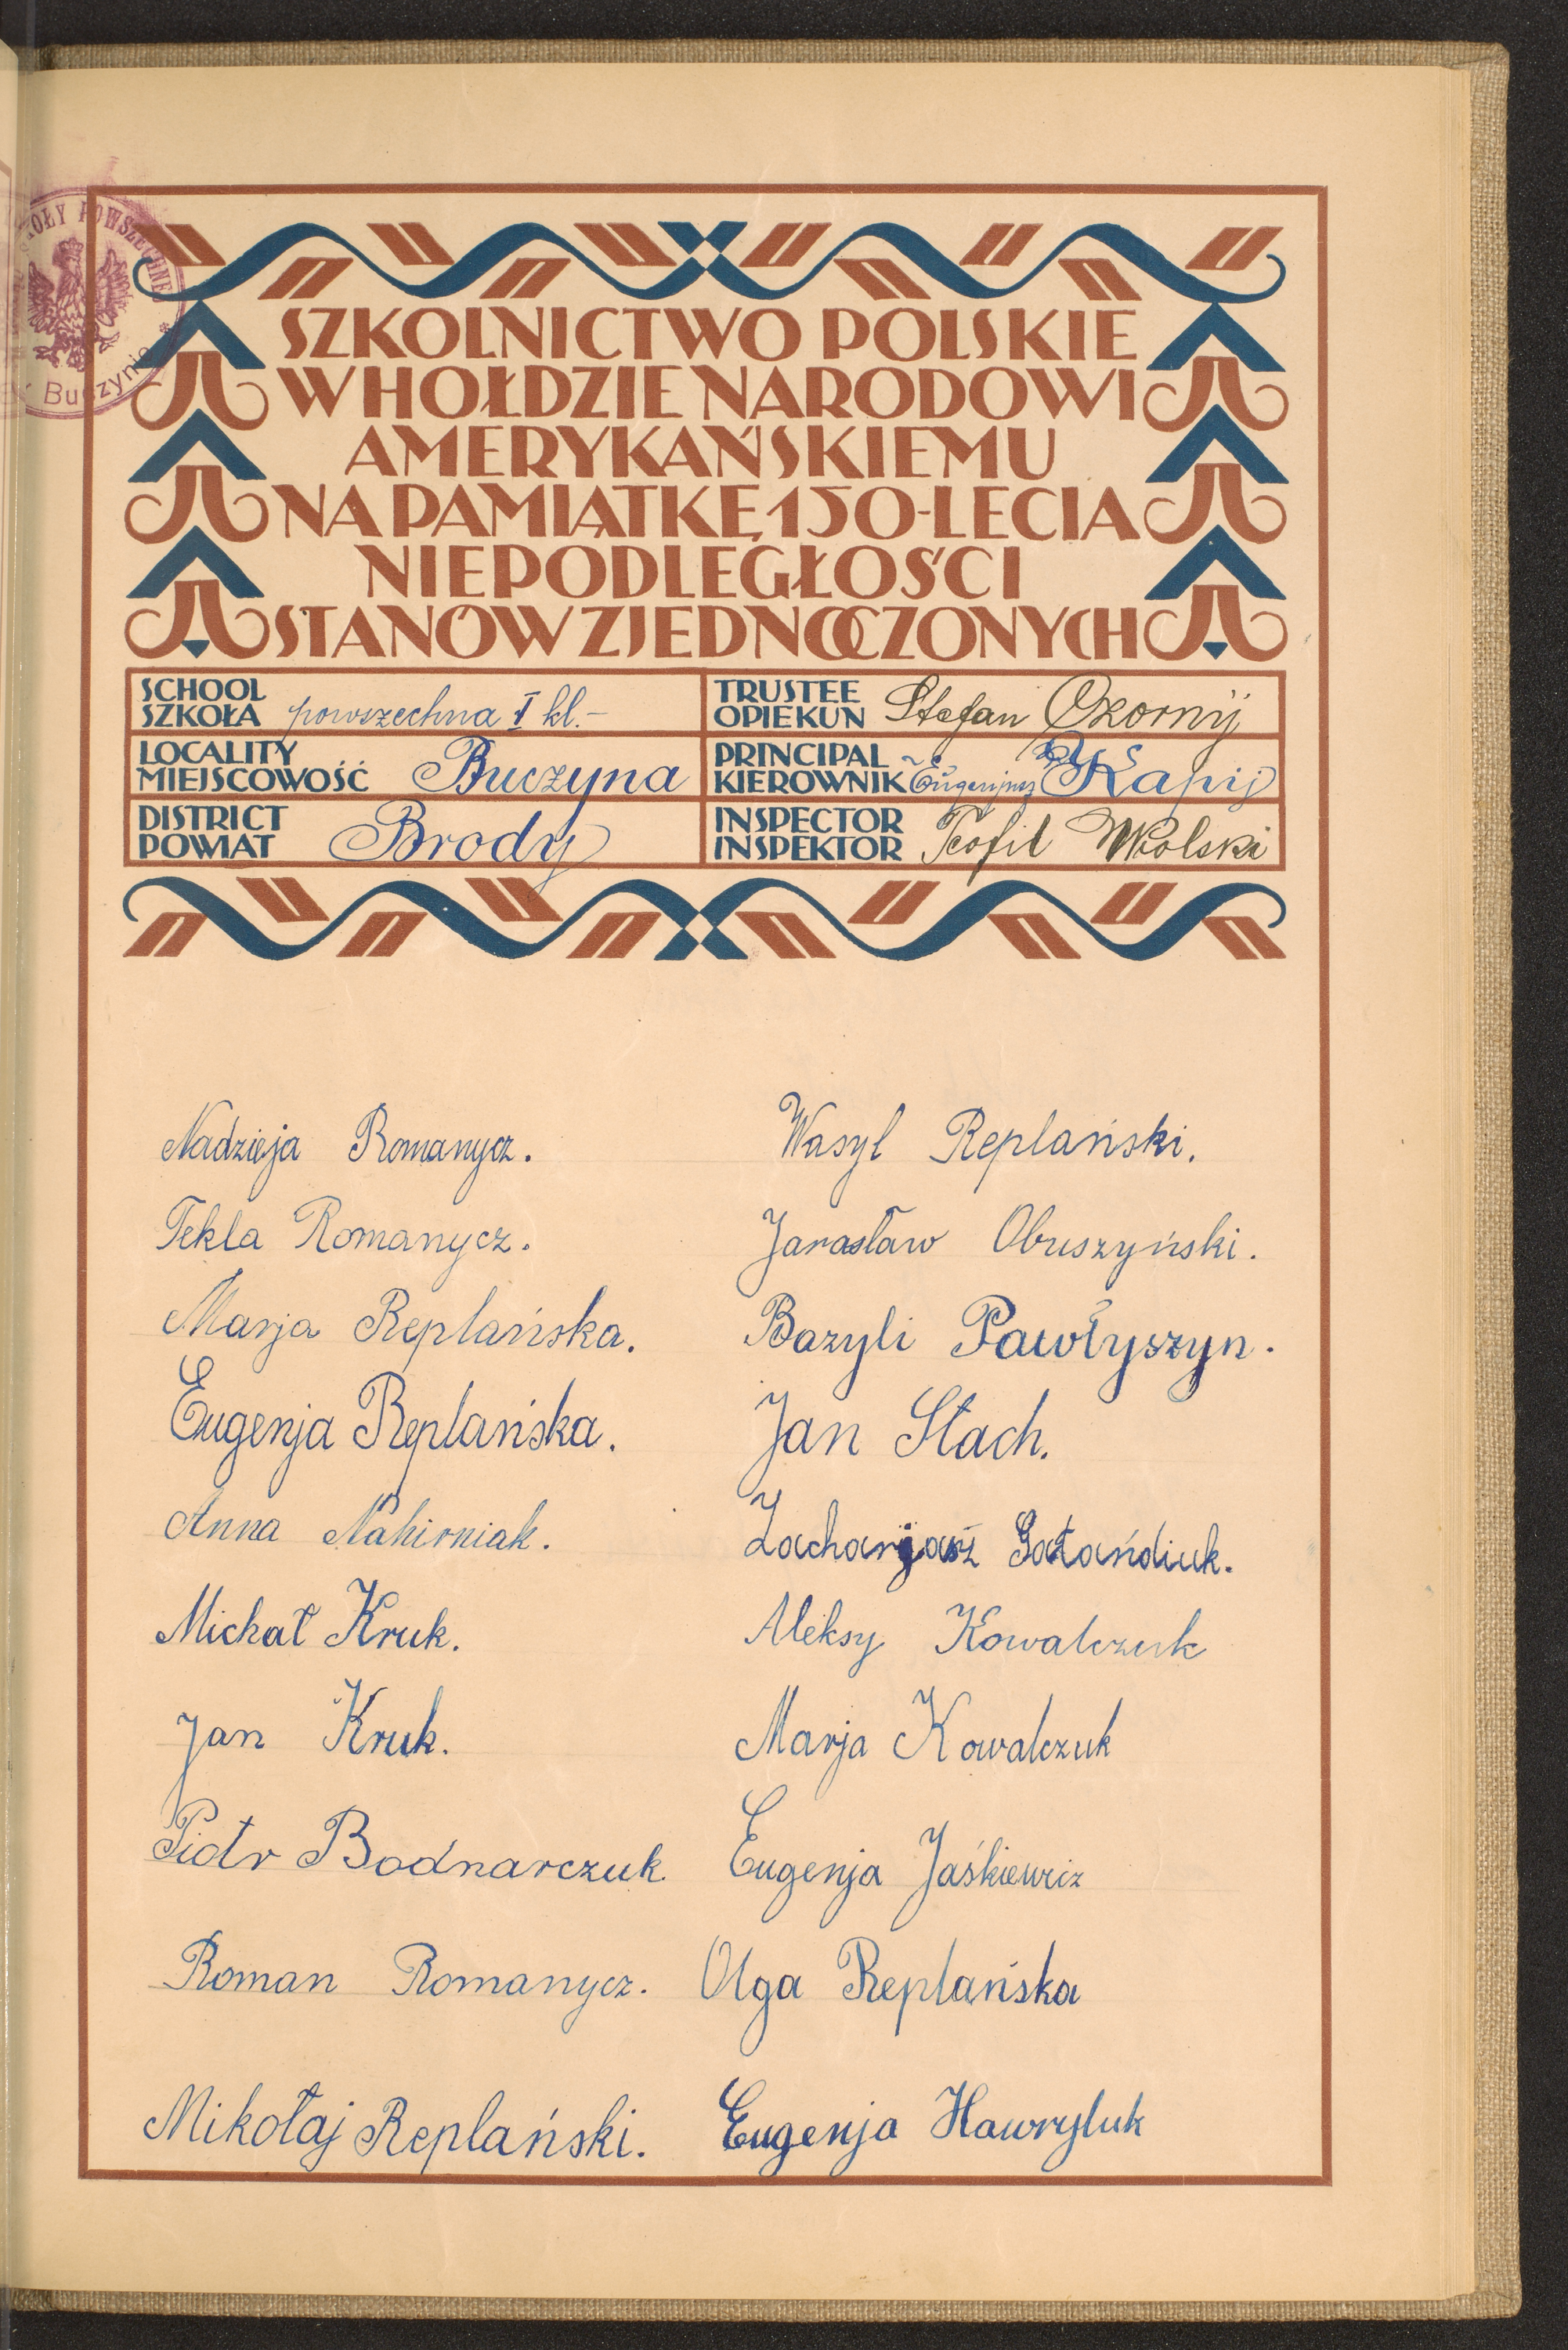 SZKOLNICTWO POLSKIE
W HOŁDZIE NARODOWI
AMERYKAŃSKIEMU
NA PAMIĄTKĘ 150-LECIA
NIEPODLEGŁOŚCI
STANÓW ZJEDNOCZONYCH
SCHOOL
SZKOŁA powszechna I kl.-
TRUSTEE
OPIEKUN Stefan
LOCALITY
MIEJSCOWOŚĆ Buczyna
PRINCIPAL
KIEROWNIK Eugenjusz Kapij
DISTRICT
POWIAT Brody
INSPECTOR
INSPEKTOR Teofil Wolski
Nadzieja Romanycz.
Tekla Romanycz.
Marja Replańska.
Eugenja Replańska.
Anna Nahirniak.
Michał Kruk.
Jan Kruk.
Piotr Bodnarczuk.
Roman Romanycz.
Mikołaj Replański.
Wasyl Replański.
Jarosław Obuszyński.
Bazyli Pawłyszyn.
Jan Stach.
Zacharjasz Gałańdiuk.
Aleksy Kowalczuk
Marja Kowalczuk
Eugenja Jaśkiewicz
Olga Replańska
Eugenja Hawryluk